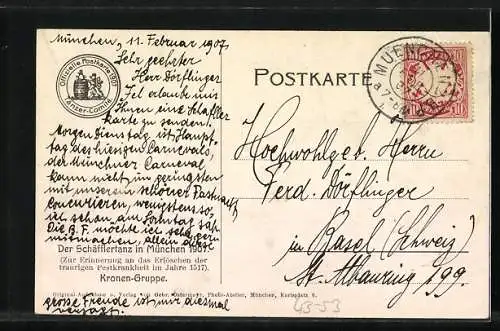 München, 11. Februar 1907.
Sehr geehrter
Herr Dörflinger
Ich erlaube mir
Ihnen eine Schäffler
karte zu senden.
Morgen Dienstag ist Haupt-
tag des hiesigen Carnevals,
der Münchner Carneval
kann nicht im geringsten
mit unserer schönen Fastnacht
concurrieren, wenigstens so-
ich schon am Sonntag sah.
Die B. F. möchte ich sehr gern
mitmachen, allein diese
große Freude ist mir diesmal
versagt.
Offizielle Postkarte 1907
Tänzer-Comité
Der Schäfflertanz in München 1907.
(Zur Erinnerung an das Erlöschen der
traurigen Pestkrankheit im Jahre 1517).
Kronen-Gruppe.
Original-Aufnahme u. Verlag von Gebr. Photo-Atelier, München
POSTKARTE
MUENCHEN
10
Hochwohlgeb. Herrn
Ferd. Dörflinger
in Basel (Schweiz)
St. Albanring 199.
43-53